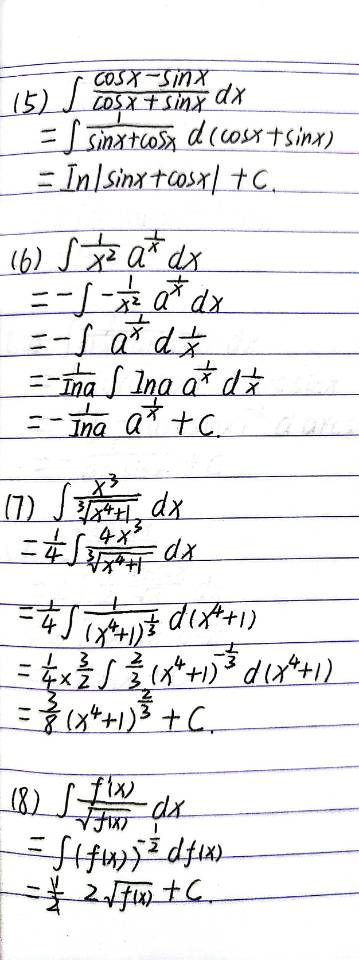 (5) ∫ (cosx-sinx)/(cosx+sinx) dx
= ∫ 1/(sinx+cosx) d(cosx+sinx)
= In|sinx+cosx| + C.
(6) ∫ 1/x² a^(1/x) dx
= -∫ -1/x² a^(1/x) dx
= -∫ a^(1/x) d 1/x
= -1/Ina ∫ Ina a^(1/x) d 1/x
= -1/Ina a^(1/x) + C.
(7) ∫ x³/∛(x⁴+1) dx
= 1/4 ∫ 4x³/∛(x⁴+1) dx
= 1/4 ∫ 1/(x⁴+1)^(1/3) d(x⁴+1)
= 1/4 × 3/2 ∫ 2/3 (x⁴+1)^(-1/3) d(x⁴+1)
= 3/8 (x⁴+1)^(2/3) + C.
(8) ∫ f'(x)/√f(x) dx
= ∫ (f(x))^(-1/2) df(x)
= 2√f(x) + C.